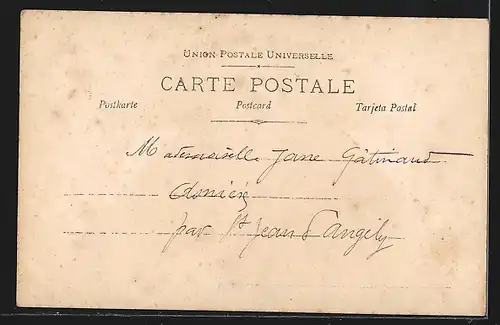 UNION POSTALE UNIVERSELLE
CARTE POSTALE
Postkarte Postcard Tarjeta Postal
Mademoiselle Jane Gâtinaud
Asnières
par St Jean d'Angély